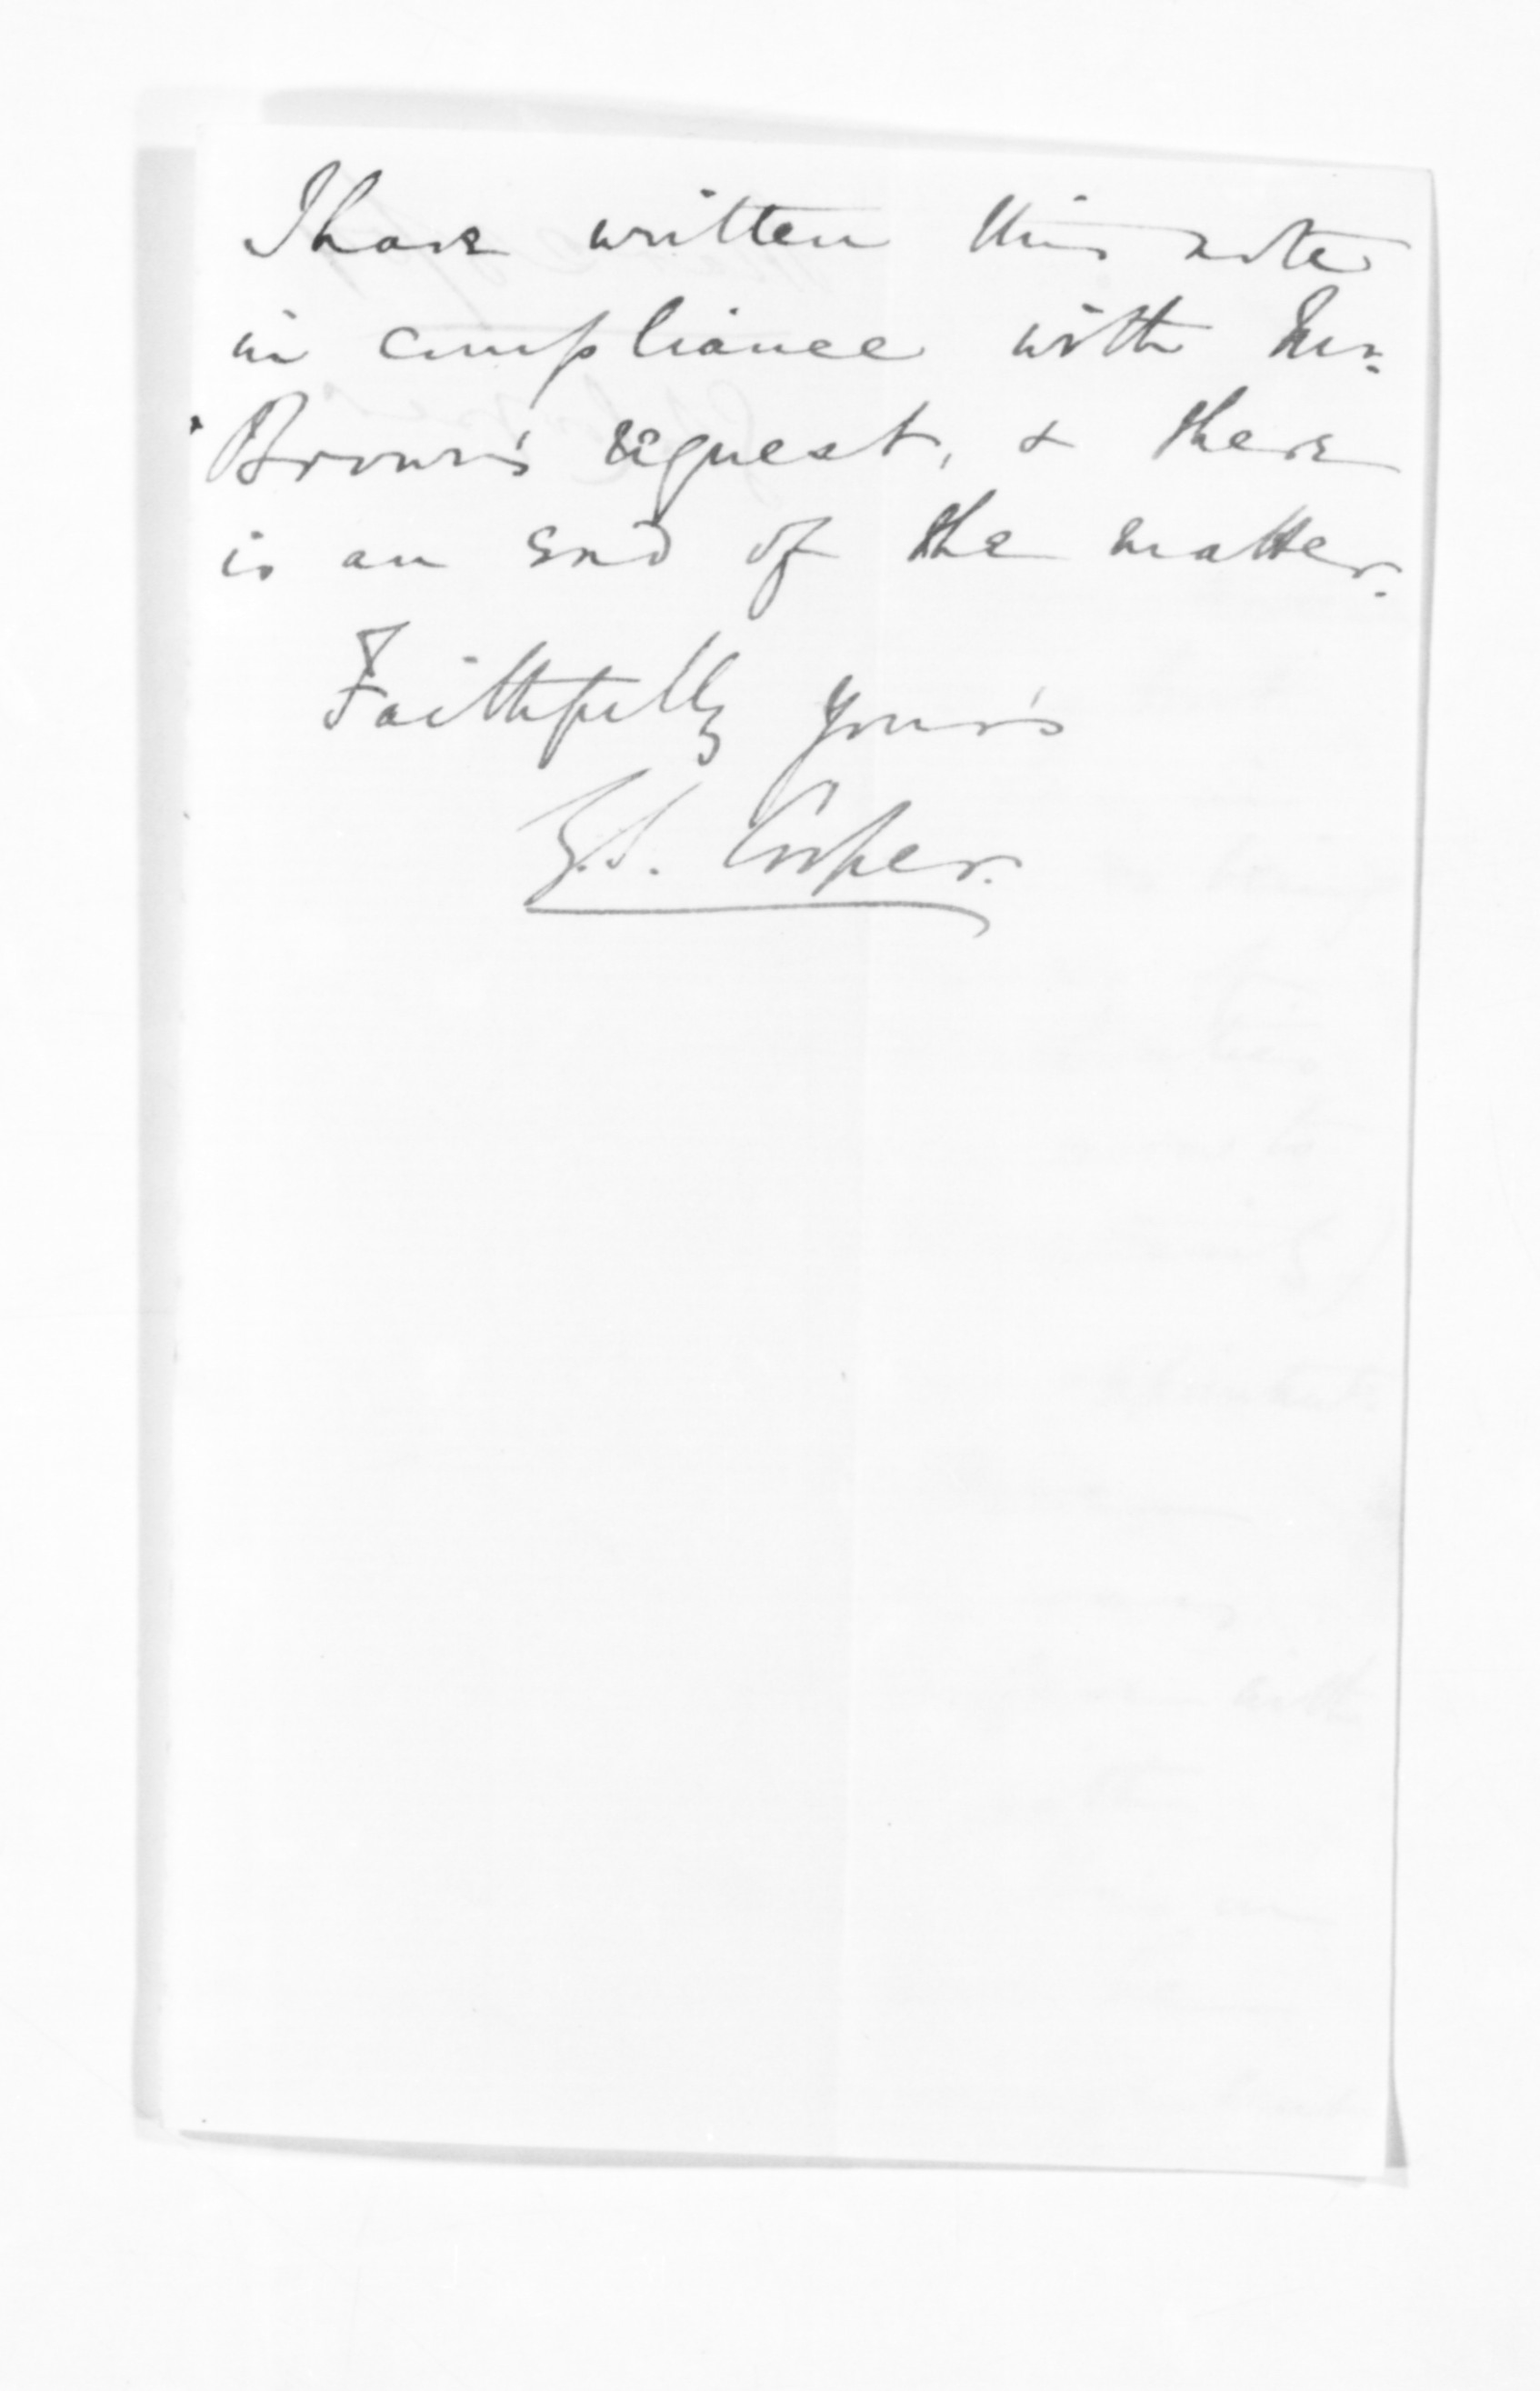 I have written this note
in compliance with Mr.
Brown's request, & there
is an end of the matter.
Faithfully your's
G.S. Cooper.